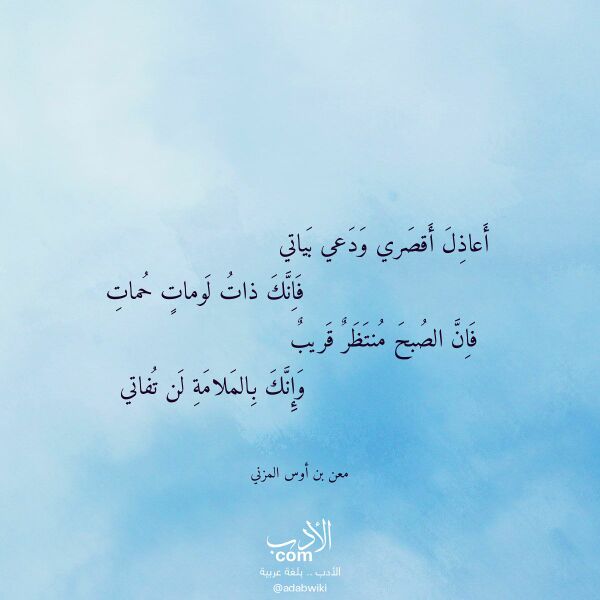 أَعاذِلَ أَقصَري وَدَعي بَياتي
فَاِنَّكَ ذاتُ لَوماتٍ حُماتِ
فَاِنَّ الصُبحَ مُنتَظَرٌ قَريبٌ
وَاِنَّكَ بِالمَلامَةِ لَن تُفاتي
معن بن أوس المزني
الأدب
com
الأدب .. بلغة عربية
@adabwiki